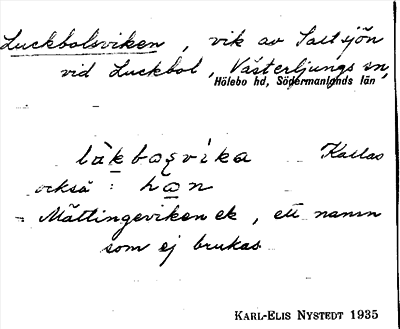 Luckbolsviken, vik av Saltsjön
vid Luckbol, Västerljungs sn,
Hölebo hd, Södermanlands län
låkbosvika Kallas
också: hon
Mättingeviken ek, ett namn
som ej brukas
KARL-ELIS NYSTEDT 1935